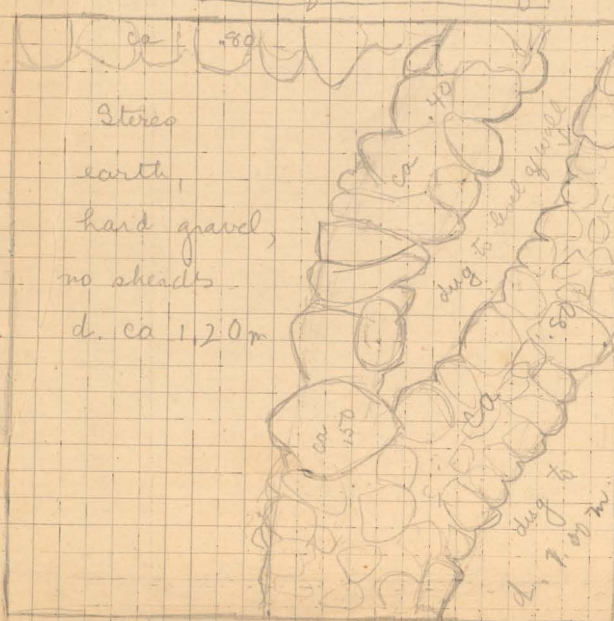 ca .80
Stereo
earth,
hard gravel,
no sherds
d. ca 1,20 m
ca .40
dug to level of
ca .80
ca .50
dug to
d. 1.00 m.